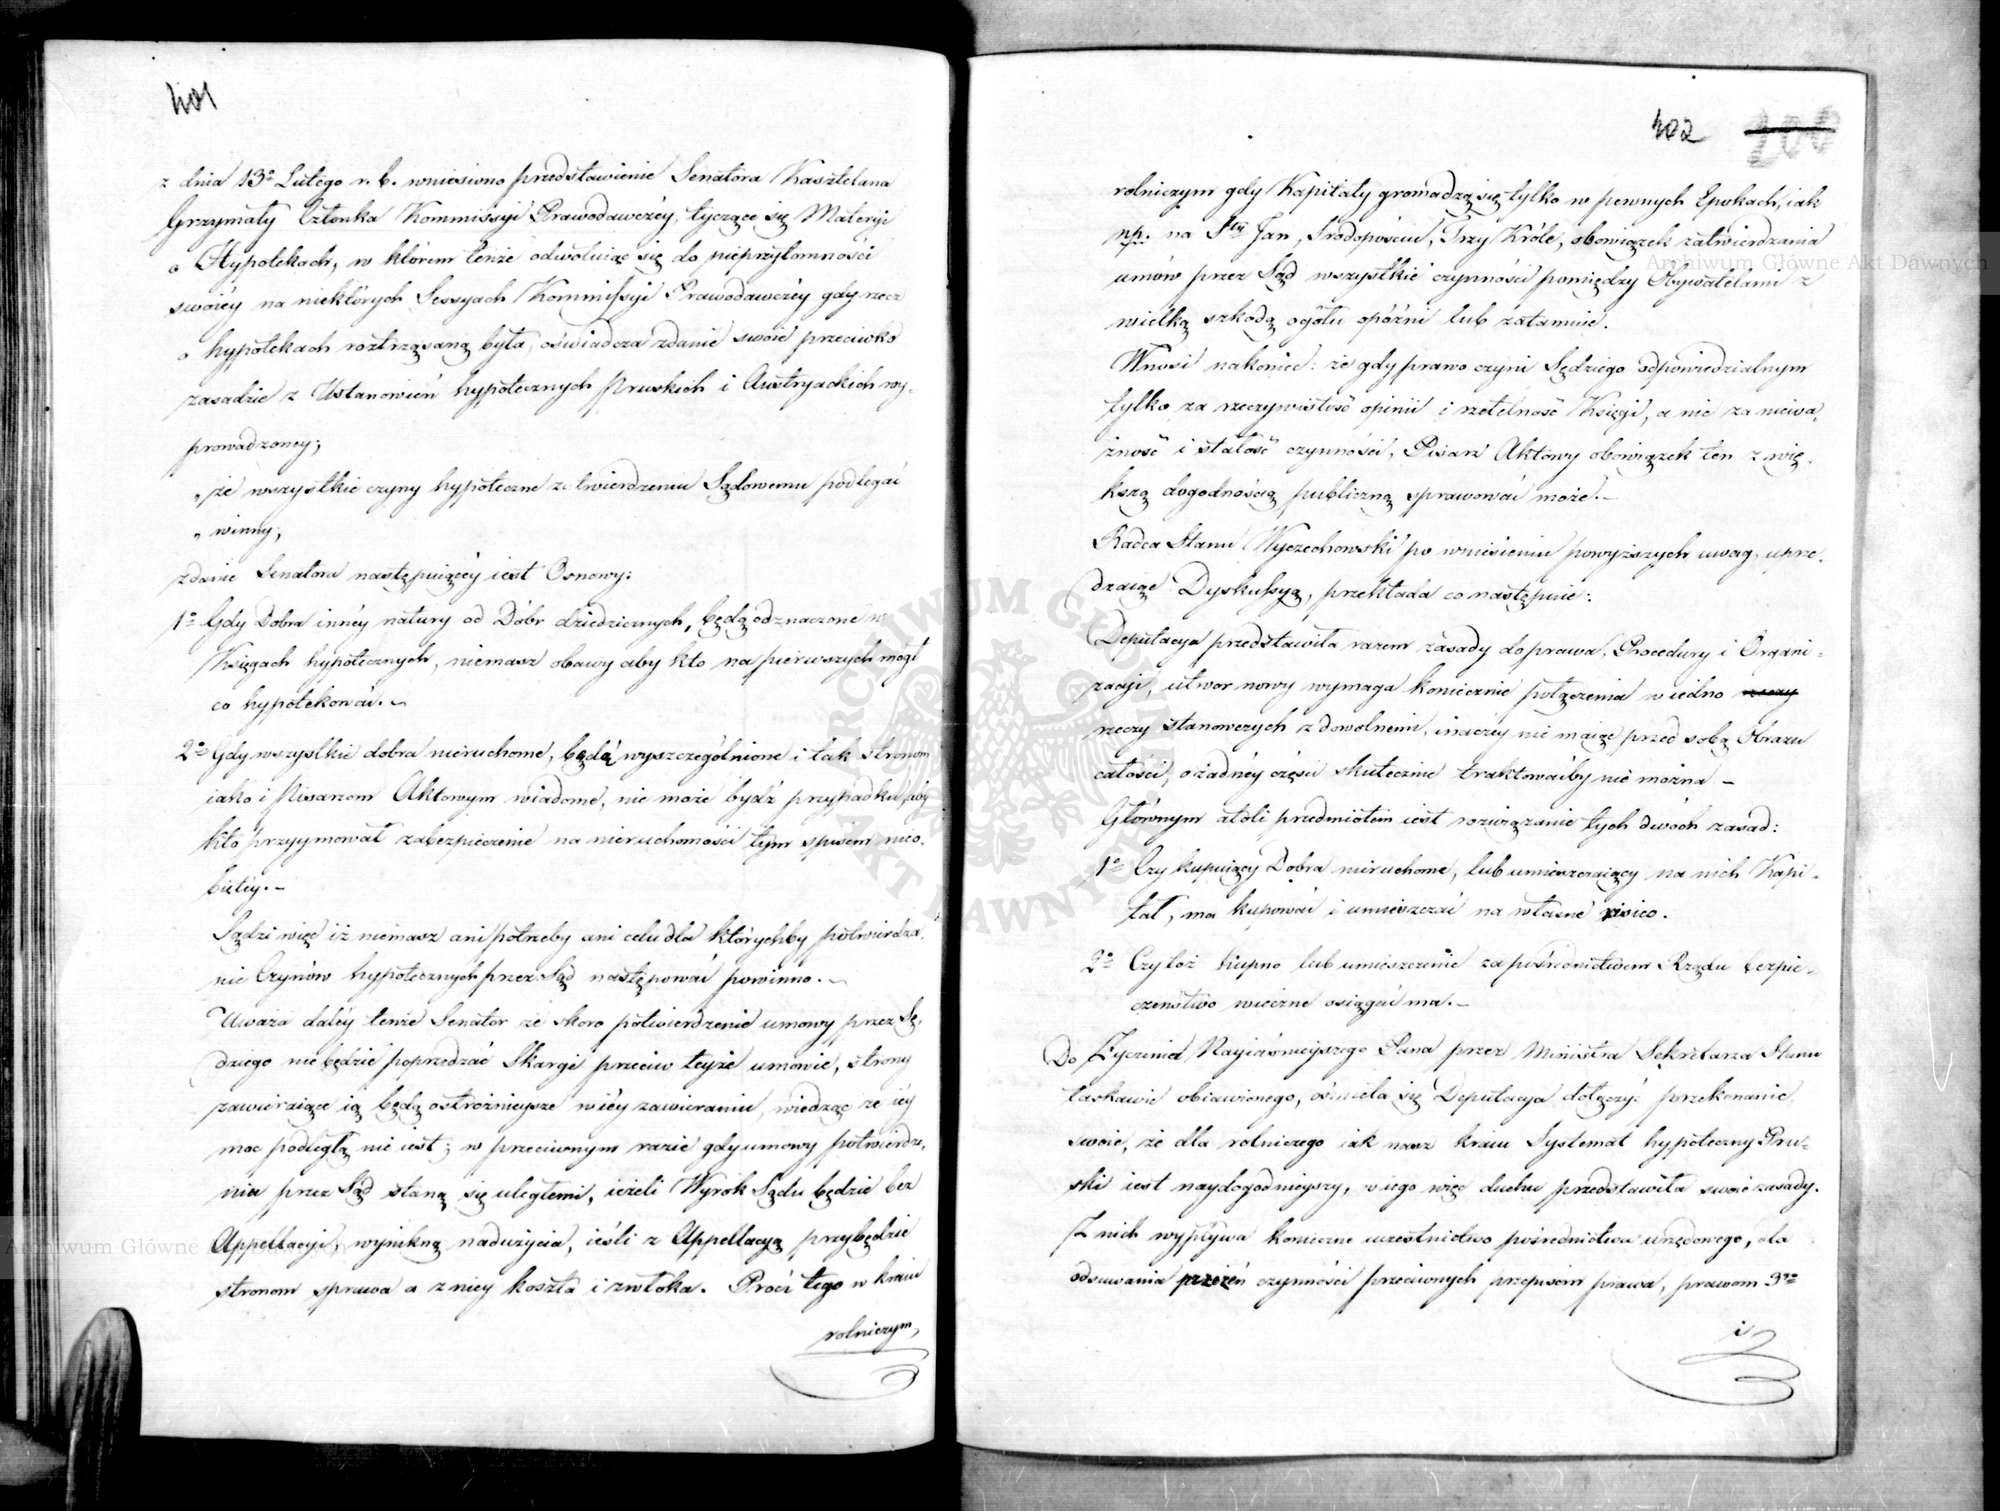 401
z dnia 13º Lutego r. b. wniesiono przedstawienie Senatora Kasztelana
Grzymały Członka Kommissyi Prawodawczéy, tyczące się Materyi
o Hypotekach, w którem tenże odwołuiąc się do nieprzytomności
swoiéy na niektórych Sessyach Kommissyi Prawodawczéy gdy rzecz
o hypotekach roztrząsaną była, oświadcza zdanie swoie przeciwko
zasadzie z Ustanowień hypotecznych Pruskich i Austryackich wy-
prowadzoney;
„ że wszystkie czyny hypoteczne zatwierdzeniu Sądowemu podlegać
„ winny;
zdanie Senatora następuiącéy iest Osnowy:
1º Gdy Dobra innéy natury od Dóbr dziedzicznych, będą odznaczone w
Xięgach hypotecznych, niemasz obawy aby kto na pierwszych mógł
co hypotekować. –
2º Gdy wszystkie dobra nieruchome, będą wyszczególnione i tak stronom
iako i Pisarzom Aktowym wiadome, nie może bydź przypadku, aby
kto przyymował zabezpieczenie na nieruchomości tym spisem nieo-
bietéy. –
Sądzi więc iż niemasz ani potrzeby ani celu dla którychby potwierdza-
nie Czynów hypotecznych przez Sąd następować powinno. –
Uważa daléy tenże Senator że skoro potwierdzenie umowy przez Sę-
dziego nie będzie poprzedzać Skargi przeciw teyże umowie, strony
zawieraiące ią będą ostrożnieysze w iéy zawieraniu, wiedząc że iéy
moc podległą nie iest; w przeciwnym razie gdy umowy potwierdze-
nia przez Sąd staną się uległemi, ieżeli Wyrok Sądu będzie bez
Appellacyi, wynikną nadużycia, ieśli z Appellacyą przybędzie
stronom sprawa a z niey koszta i zwłoka. Prócz tego w kraiu
rolniczym,
402 200
rolniczym gdy Kapitały gromadzą się tylko w pewnych Epokach, iak
np. na Sty Jan, Środopościu, Trzy Króle, obowiązek zatwierdzania
umów przez Sąd wszystkie czynności pomiędzy Obywatelami z
wielką szkodą ogółu opóźni lub zatamuie.
Wnosi nakoniec: że gdy prawo czyni Sędziego odpowiedzialnym
tylko za rzeczywistość opinii i rzetelność Xięgi, a nie za niewa-
żność i stałość czynności, Pisarz Aktowy obowiązek ten z wię-
kszą dogodnością publiczną sprawować może. –
Radca Stanu Wyczechowski po wniesieniu powyższych uwag, uprze-
dzaiąc Dyskussyą, przekłada co następuie:
Deputacya przedstawiła razem zasady do prawa, Procedury i Organi-
zacyi, utwor nowy wymaga koniecznie połączenia w iedno
rzeczy stanowczych z dowolnemi, inaczéy nie maiąc przed sobą Obrazu
całości, o żadnéy części skutecznie traktowaćby nie można –
Głównym atoli przedmiotem iest rozwiązanie tych dwóch zasad:
1º Czy kupuiący Dobra nieruchome, lub umieszczaiący na nich Kapi-
tał, ma kupować i umieszczać na własne risico.
2º Czyłoż kupno lub umieszczenie za pośrednictwem Rządu bezpie-
czeństwo wieczne osiągać ma. –
Do Życzenia Nayiaśnieyszego Pana przez Ministra Sekretarza Stanu
łaskawie obiawionego, ośmiela się Deputacya dołączyć przekonanie
swoie, że dla rolniczego iak nasz kraiu Systemat hypoteczny Pru-
ski iest naydogodnieyszy, w iego więc duchu przedstawiła swoie zasady.
Z nich wypływa konieczne uczestnictwo pośrednictwa urzędowego, dla
odsuwania czynności przeciwnych przepisom prawa, prawom 3cie
i
Archiwum Główne Akt Dawnych
Archiwum Główne Akt Dawnych
ARCHIWUM GŁÓWNE AKT DAWNYCH